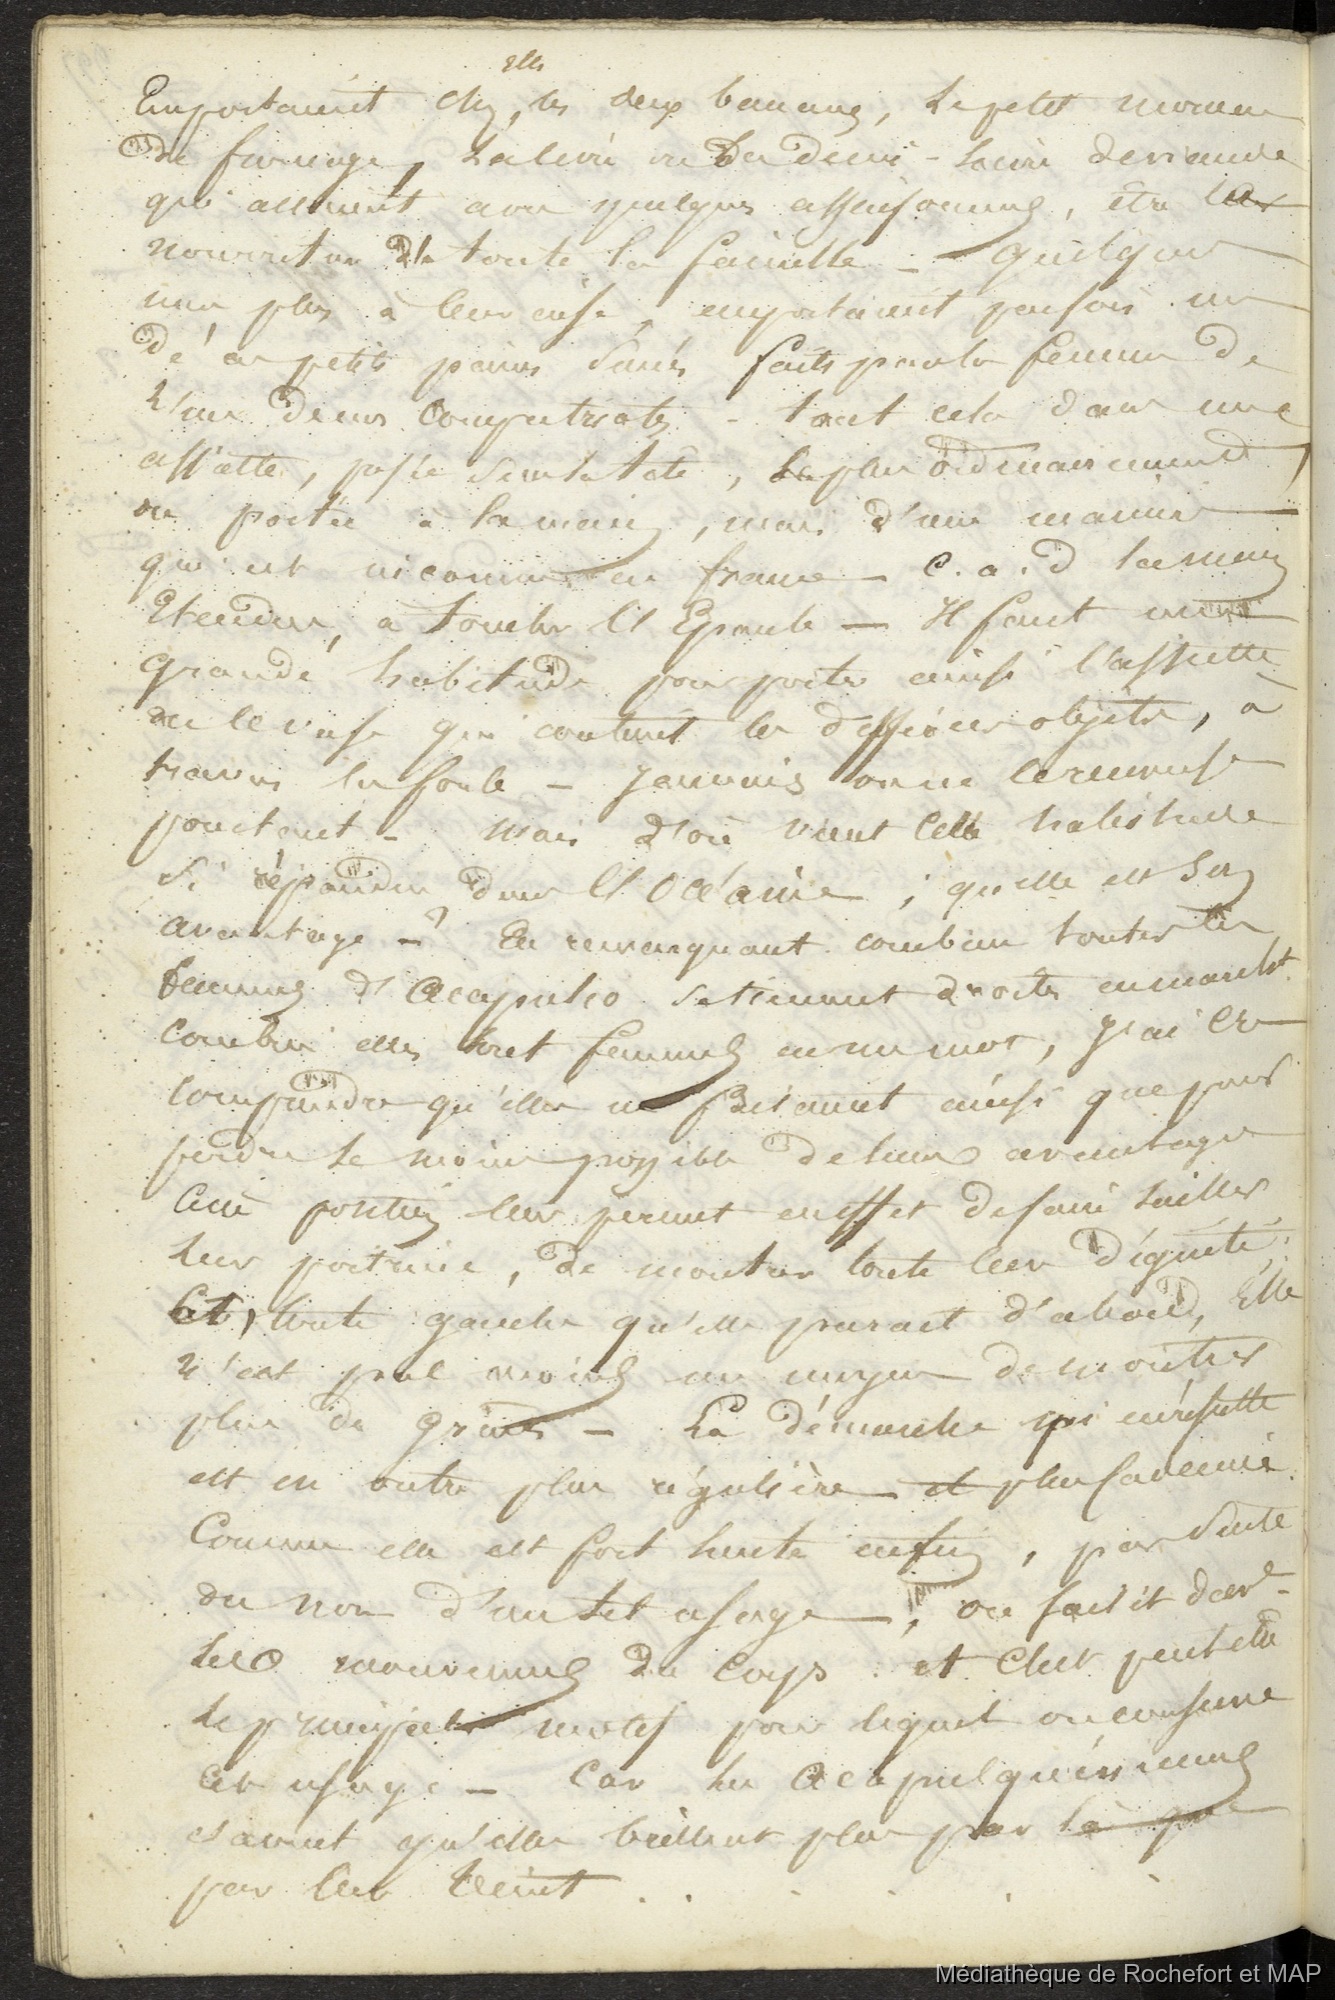 elles
Emportaient chez, les deux bananes, le petit morceau
de fromage, la livre ou la demi-livre de viande
qui allaient avec quelques assaisonnemens, être la
nourriture de toute la famille — quelques
une plus à leur aise, emportaient parfois un
de ces petits pains sucrés faits par la femme de
l'un de nos compatriotes - tout cela dans une
assiette, posée sur la tête, le plus ordinairement,
ou portée à la main, mais d'une manière
qui est inconnue en france — c. a. d la main
Etendue, a toucher l'Epaule — Il faut une
grande habitude pour porter ainsi l'assiette
ou le vase qui contient les différens objets, à
travers la foule — Jamais on ne le renverse
pourtant — mais d'où vient cette habitude
si répandue dans l'Océanie ; quelle est son
avantage —? En remarquant combien toutes les
femmes d'Acapulco se tiennent droites en marchant
combien elles sont femmes en un mot, j'ai cru
comprendre qu'elles ne faisaient ainsi que pour
perdre le moins possible de leurs avantages
Cette position leur permet en effet de faire saillir
leur poitrine, de montrer toute leur dignité,
Et, toute gauche qu'elle parait d'abord, Elle
n'est pas moins un moyen de montrer
plus de grâces — La démarche qui en résulte
est en outre plus régulière et plus cadencée.
Comme elle est fort lente enfin, par suite
ou non d'un tel usage —, on saisit davan-
les mouvemens du corps. et C'est peut etre
le principal motif pour lequel on conserve
cet usage — Car les Acapulquéniennes
savent qu'elles brillent plus par là que
par leur teint . . . . .
Médiathèque de Rochefort et MAP